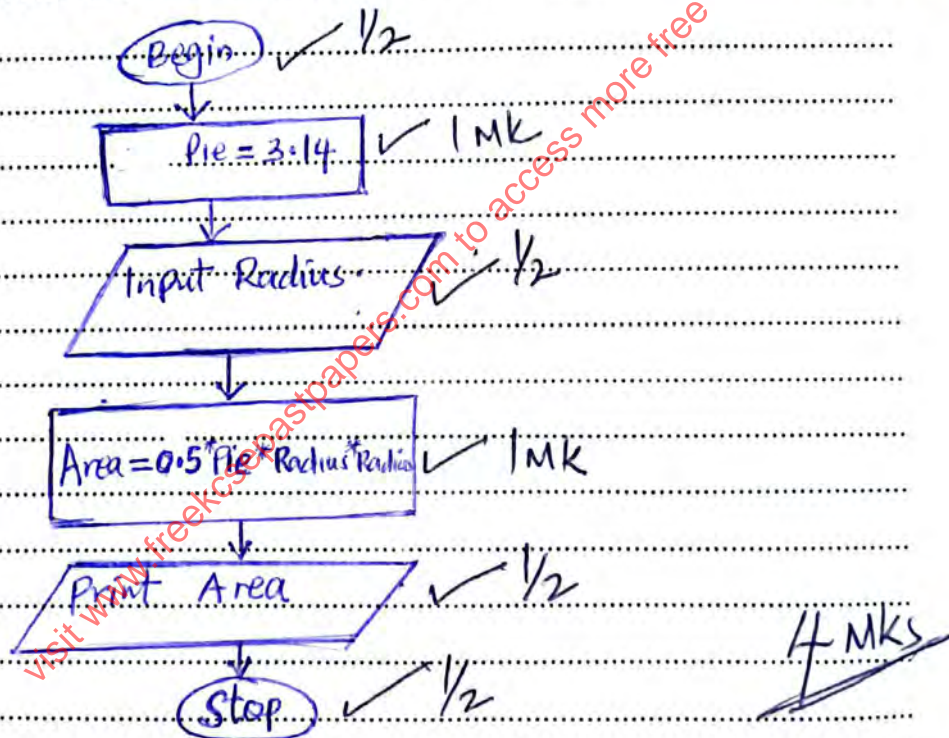 Begin ✓ 1/2
Pie = 3.14 ✓ 1 MK
Input Radius. ✓ 1/2
Area = 0.5*Pie*Radius*Radius ✓ 1 MK
Print Area ✓ 1/2
Stop ✓ 1/2
4 MKS
visit www.freekcsepastpapers.com to access more free